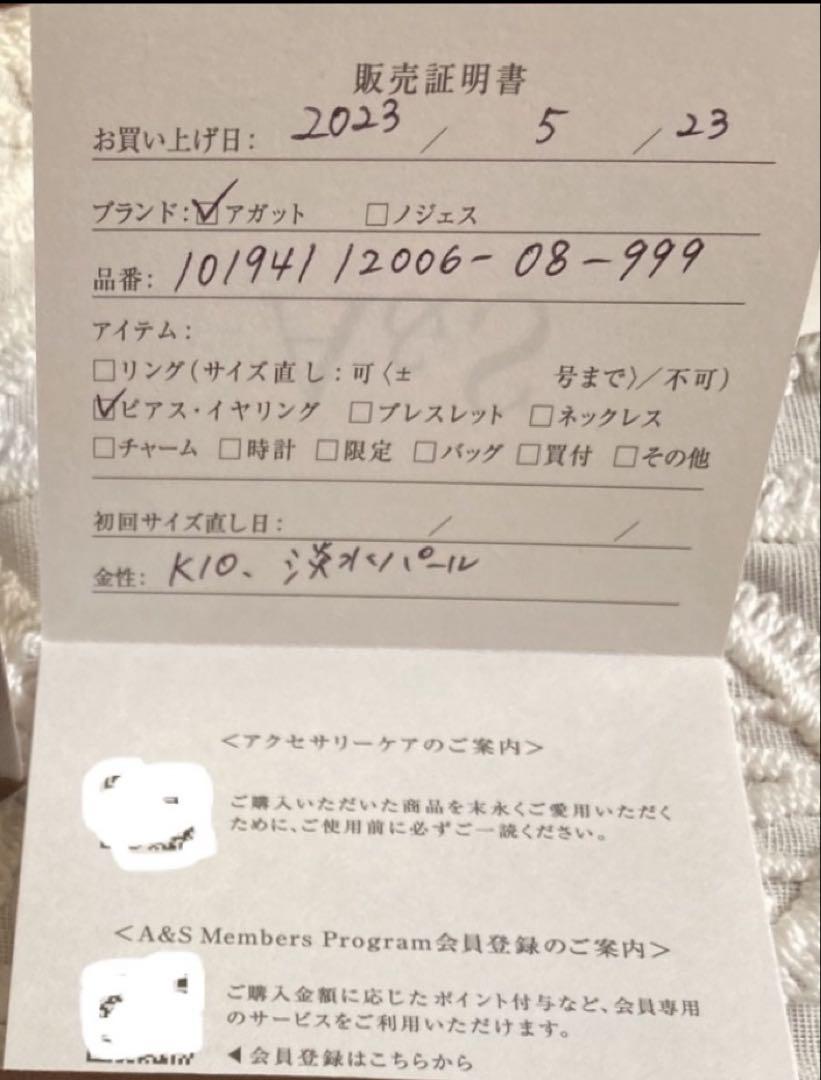 販売証明書
お買い上げ日: 2023 / 5 / 23
ブランド: ☑アガット □ノジェス
品番: 10194112006-08-999
アイテム:
□リング(サイズ直し:可〈± 号まで〉/不可)
☑ピアス・イヤリング □ブレスレット □ネックレス
□チャーム □時計 □限定 □バッグ □買付 □その他
初回サイズ直し日: / /
金性: K10、淡水パール
<アクセサリーケアのご案内>
ご購入いただいた商品を末永くご愛用いただく
ために、ご使用前に必ずご一読ください。
<A&S Members Program会員登録のご案内>
ご購入金額に応じたポイント付与など、会員専用
のサービスをご利用いただけます。
◀会員登録はこちらから